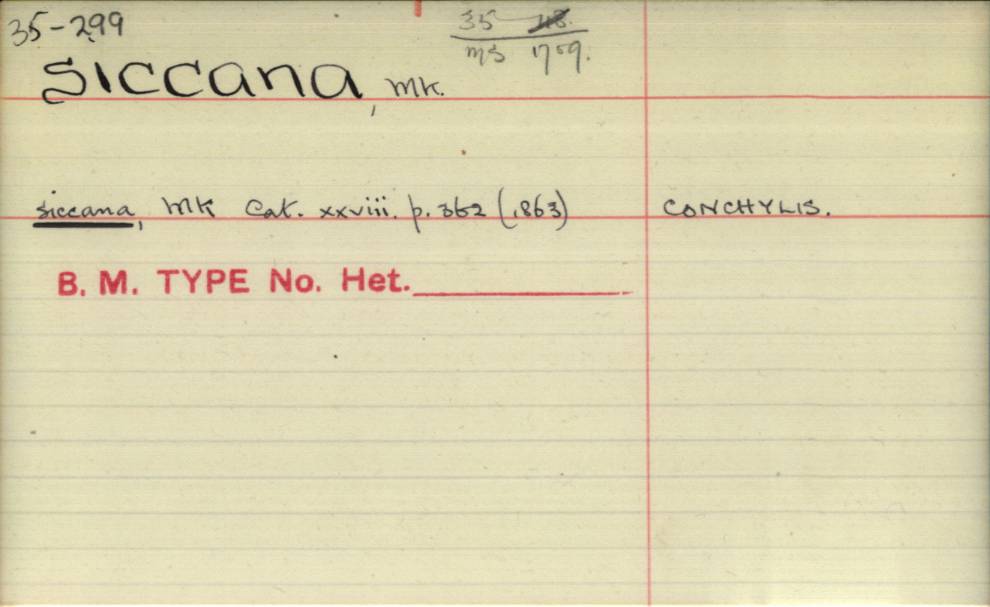 35-299
35
MS 1759.
siccana, Mk.
siccana, Mk Cat. xxviii. p. 362 (1863) CONCHYLIS.
B. M. TYPE No. Het.